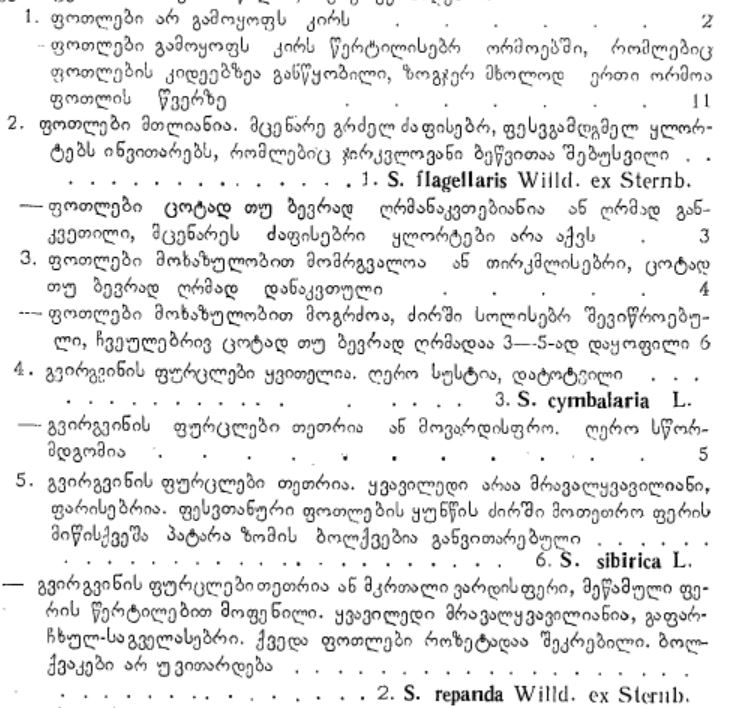 1. ფოთლები არ გამოყოფს კირს . . . . . . 2
- ფოთლები გამოყოფს კირს წერტილისებრ ორმოებში, რომლებიც
ფოთლების კიდეებზეა განწყობილი, ზოგჯერ მხოლოდ ერთი ორმოა
ფოთლის წვერზე . . . . . . . 11
2. ფოთლები მთლიანია. მცენარე გრძელ ძაფისებრ, ფესვგამდგმელ ყლორ-
ტებს ინვითარებს, რომლებიც ჯირკვლოვანი ბეწვითაა შებუსვილი . .
. . . . . . . . . . . . . . 1. S. flagellaris Willd. ex Sternb.
— ფოთლები ცოტად თუ ბევრად ღრმანაკვთებიანია ან ღრმად გან-
კვეთილი, მცენარეს ძაფისებრი ყლორტები არა აქვს . 3
3. ფოთლები მოხაზულობით მომრგვალოა ან თირკმლისებრი, ცოტად
თუ ბევრად ღრმად დანაკვთული . . . . . . 4
— ფოთლები მოხაზულობით მოგრძოა, ძირში სოლისებრ შევიწროებუ-
ლი, ჩვეულებრივ ცოტად თუ ბევრად ღრმადაა 3—5-ად დაყოფილი 6
4. გვირგვინის ფურცლები ყვითელია. ღერო სუსტია, დატოტვილი . . .
. . . . . . . . . . . . . . . 3. S. cymbalaria L.
— გვირგვინის ფურცლები თეთრია ან მოვარდისფრო. ღერო სწორ-
მდგომია . . . . . . . . . . 5
5. გვირგვინის ფურცლები თეთრია. ყვავილედი არაა მრავალყვავილიანი,
ფარისებრია. ფესვთანური ფოთლების ყუნწის ძირში მოთეთრო ფერის
მიწისქვეშა პატარა ზომის ბოლქვებია განვითარებული . . . . . .
. . . . . . . . . . . . . . . . . . 6. S. sibirica L.
— გვირგვინის ფურცლები თეთრია ან მკრთალი ვარდისფერი, მეწამული ფე-
რის წერტილებით მოფენილი. ყვავილედი მრავალყვავილიანია, გაფარ-
ჩხულ-საგველასებრი. ქვედა ფოთლები როზეტადაა შეკრებილი. ბოლ-
ქვაკები არ უვითარდება . . . . . . . . . . . . . . .
. . . . . . . . . . . . . . 2. S. repanda Willd. ex Sternb.